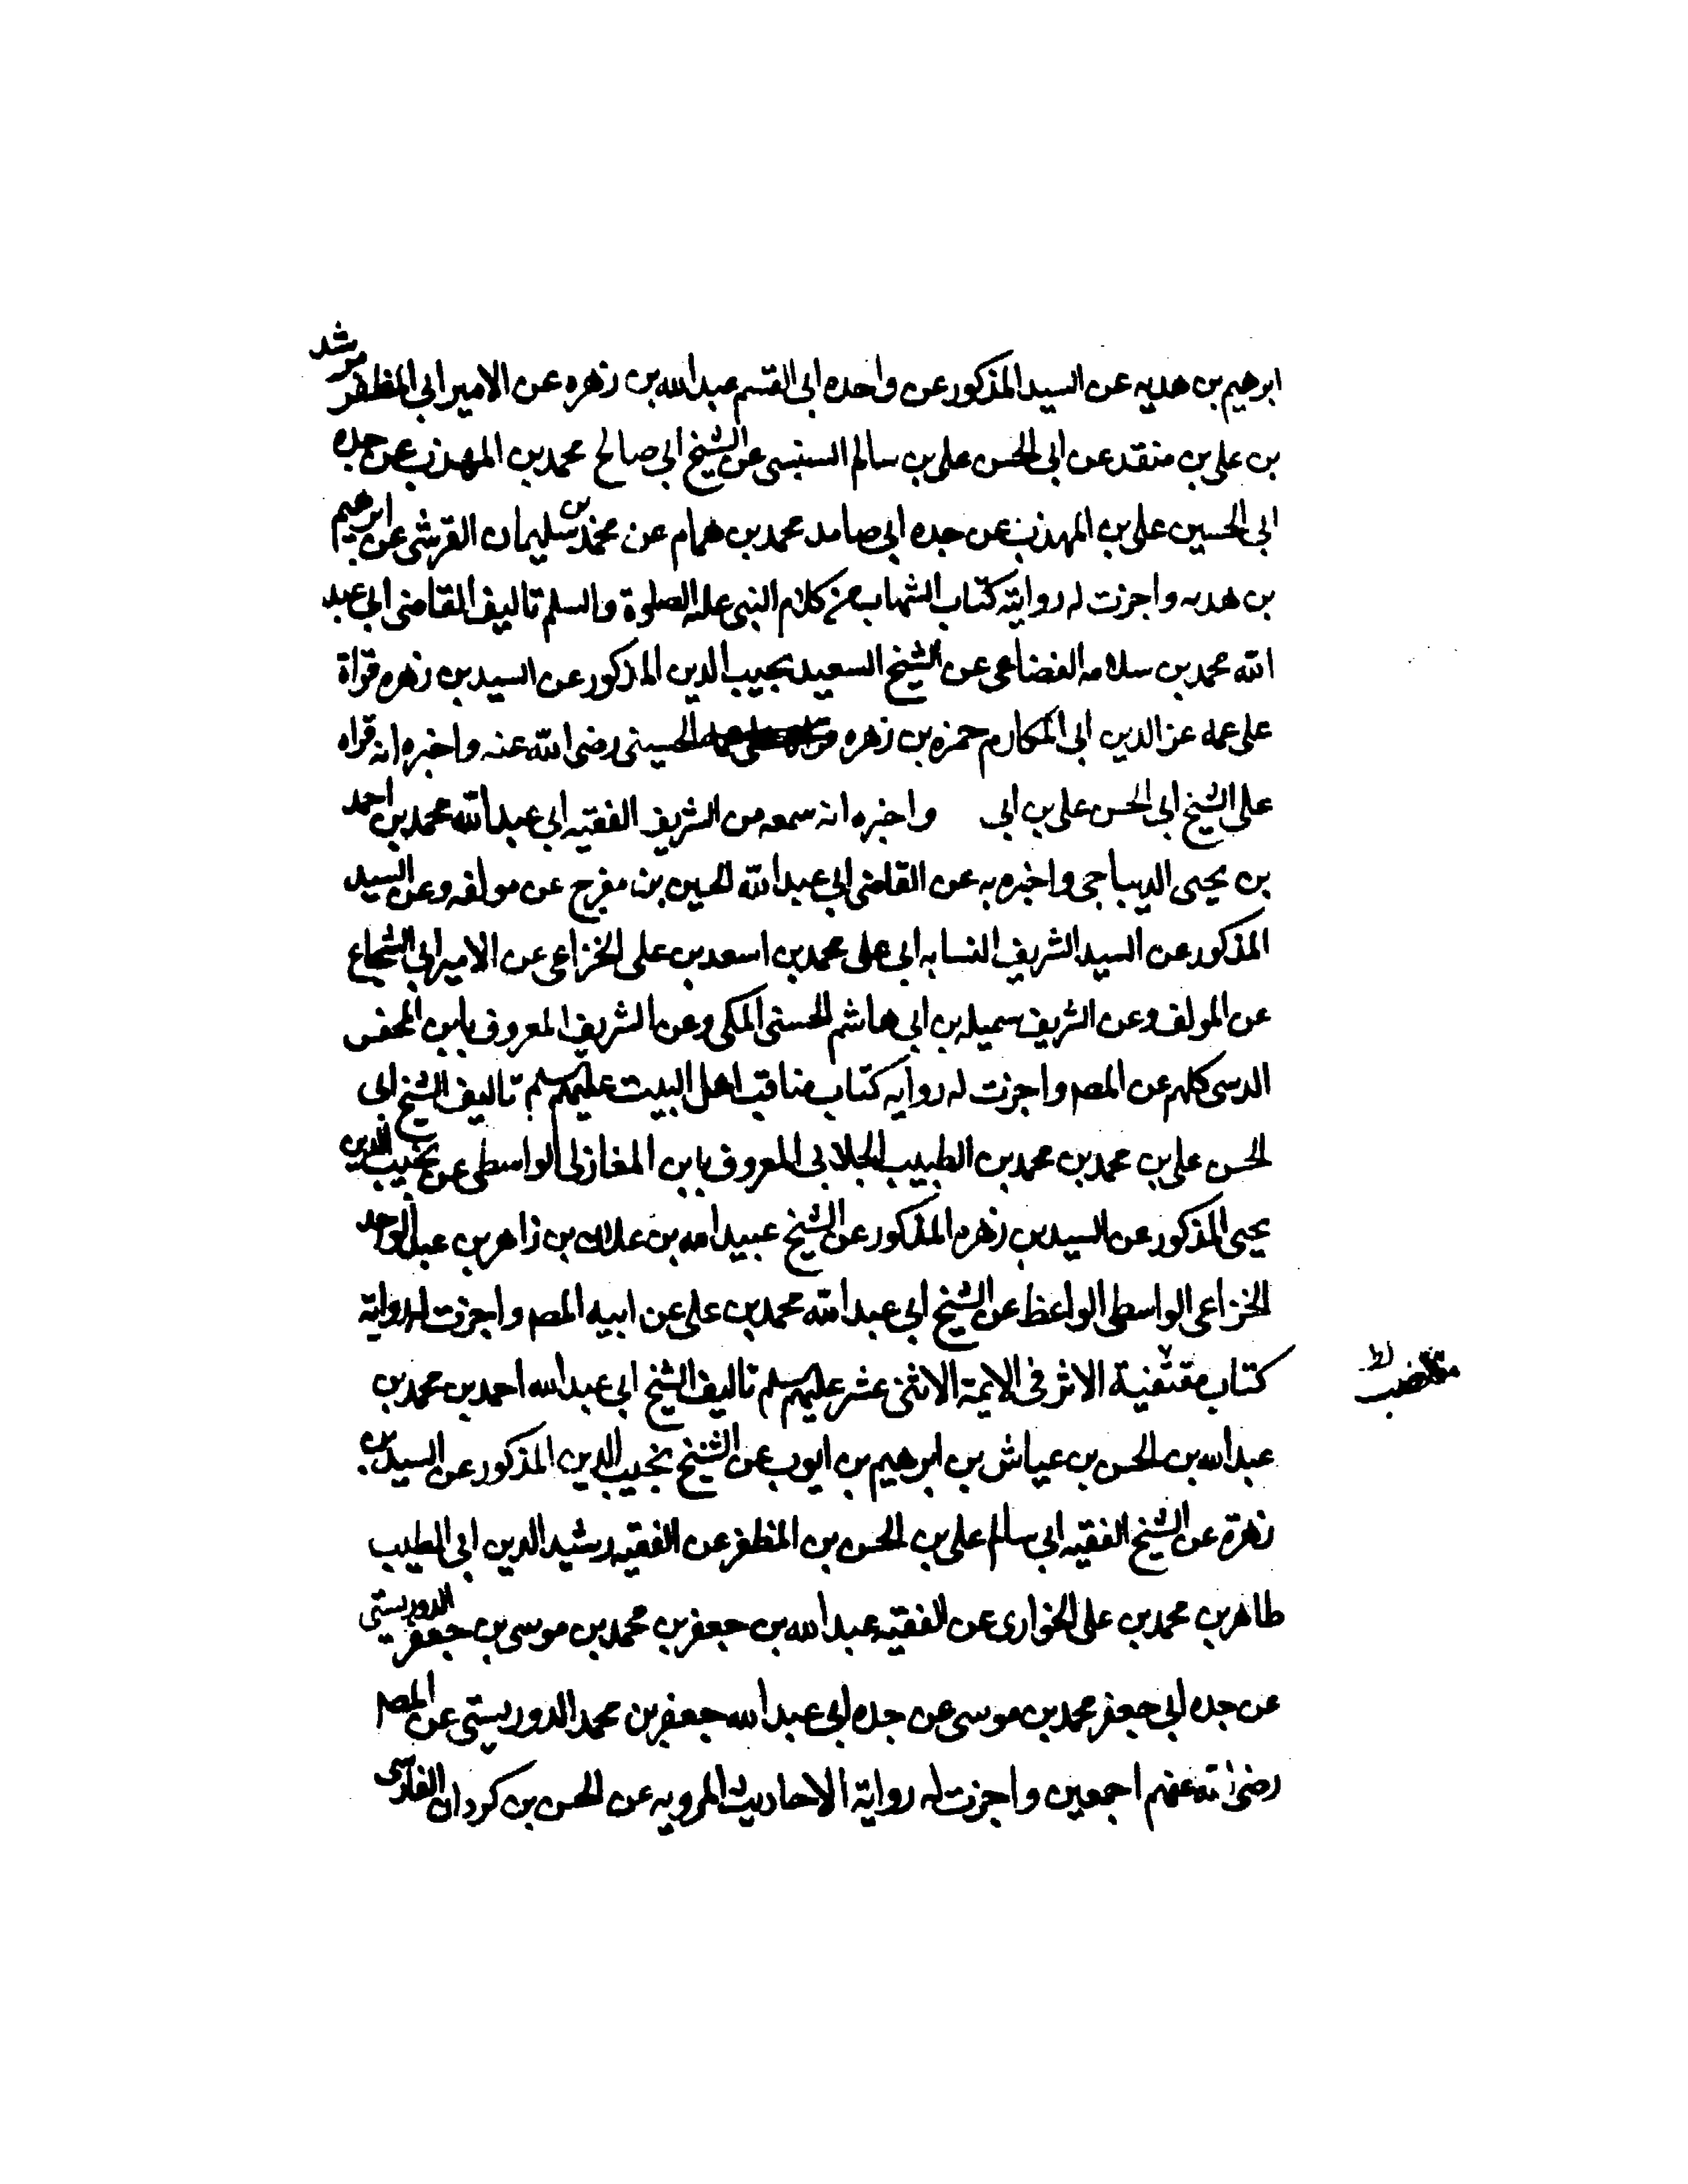 ابرهيم بن هديه عن السيد المذكور عن واحده ابى القسم عبد الله بن زهره عن الامير ابى المظفر مرشد
بن على بن منقد عن ابى الحسن على بن سالم السنبسى عن الشيخ ابى صالح محمد بن المهذب عن جده
ابى الحسين على بن المهذب عن جده ابى صامد محمد بن همام عن محمد بن سليمان القرشى عن ابرهيم
بن هدبه واجزت له رواية كتاب الشهاب من كلام النبى عليه الصلوة والسلم تاليف القاضى ابى عبد
الله محمد بن سلامه القضاعى عن الشيخ السعيد نجيب الدين المذكور عن السيد بن زهره قراة
على عمه عز الدين ابى المكارم حمزه بن زهره الحسينى رضى الله عنه واخبره انه قراه
على الشيخ ابى الحسن على بن ابى واخبره انه سمعه من الشريف الفقيه ابى عبد الله محمد بن احمد
بن يحيى الديباجى واخبره به عن القاضى ابى عبد الله الحسين بن مفرج عن مولفه وعن السيد
المذكور عن السيد الشريف النسابه ابى على محمد بن اسعد بن على الخزاعى عن الامير ابى الشجاع
عن المولف وعن الشريف سميله بن ابى هاشم الحسنى المكى وعن الشريف المعروف بابن
كلهم عن المصم واجزت له روايه كتاب مناقب اهل البيت عليهم سلم تاليف الشيخ ابى
الحسن على بن محمد بن محمد بن الطبيب الجلابى المعروف بابن المغازلى الواسطى عن نجيب الدين
يحيى المذكور عن السيد بن زهره المذكور عن الشيخ عبيد الله بن علان بن زاهر بن عبد الواحد
الخزاعى الواسطى الواعظ عن الشيخ ابى عبد الله محمد بن على عن ابيه المصم واجزت له رواية
كتاب مقتفية الاثر فى الايمة الاثنى عشر عليهم سلم تاليف الشيخ ابى عبد الله احمد بن محمد بن
مقتضب
عبد الله بن الحسن بن عياش بن ابرهيم بن ايوب عن الشيخ نجيب الدين المذكور عن السيد بن
زهرة عن الشيخ الفقيه ابى سالم على بن الحسن بن المظفر عن الفقيه رشيد الدين ابى الطيب
طاهر بن محمد بن على الخوارى عن الفقيه عبد الله بن جعفر بن محمد بن موسى بن جعفر الدوريستى
عن جده ابى جعفر محمد بن موسى عن جده ابى عبد الله جعفر بن محمد الدوريستى عن المصم
رضى الله عنهم اجمعين واجزت له رواية الاحاديث المرويه عن الحسن بن كردان الفارسى